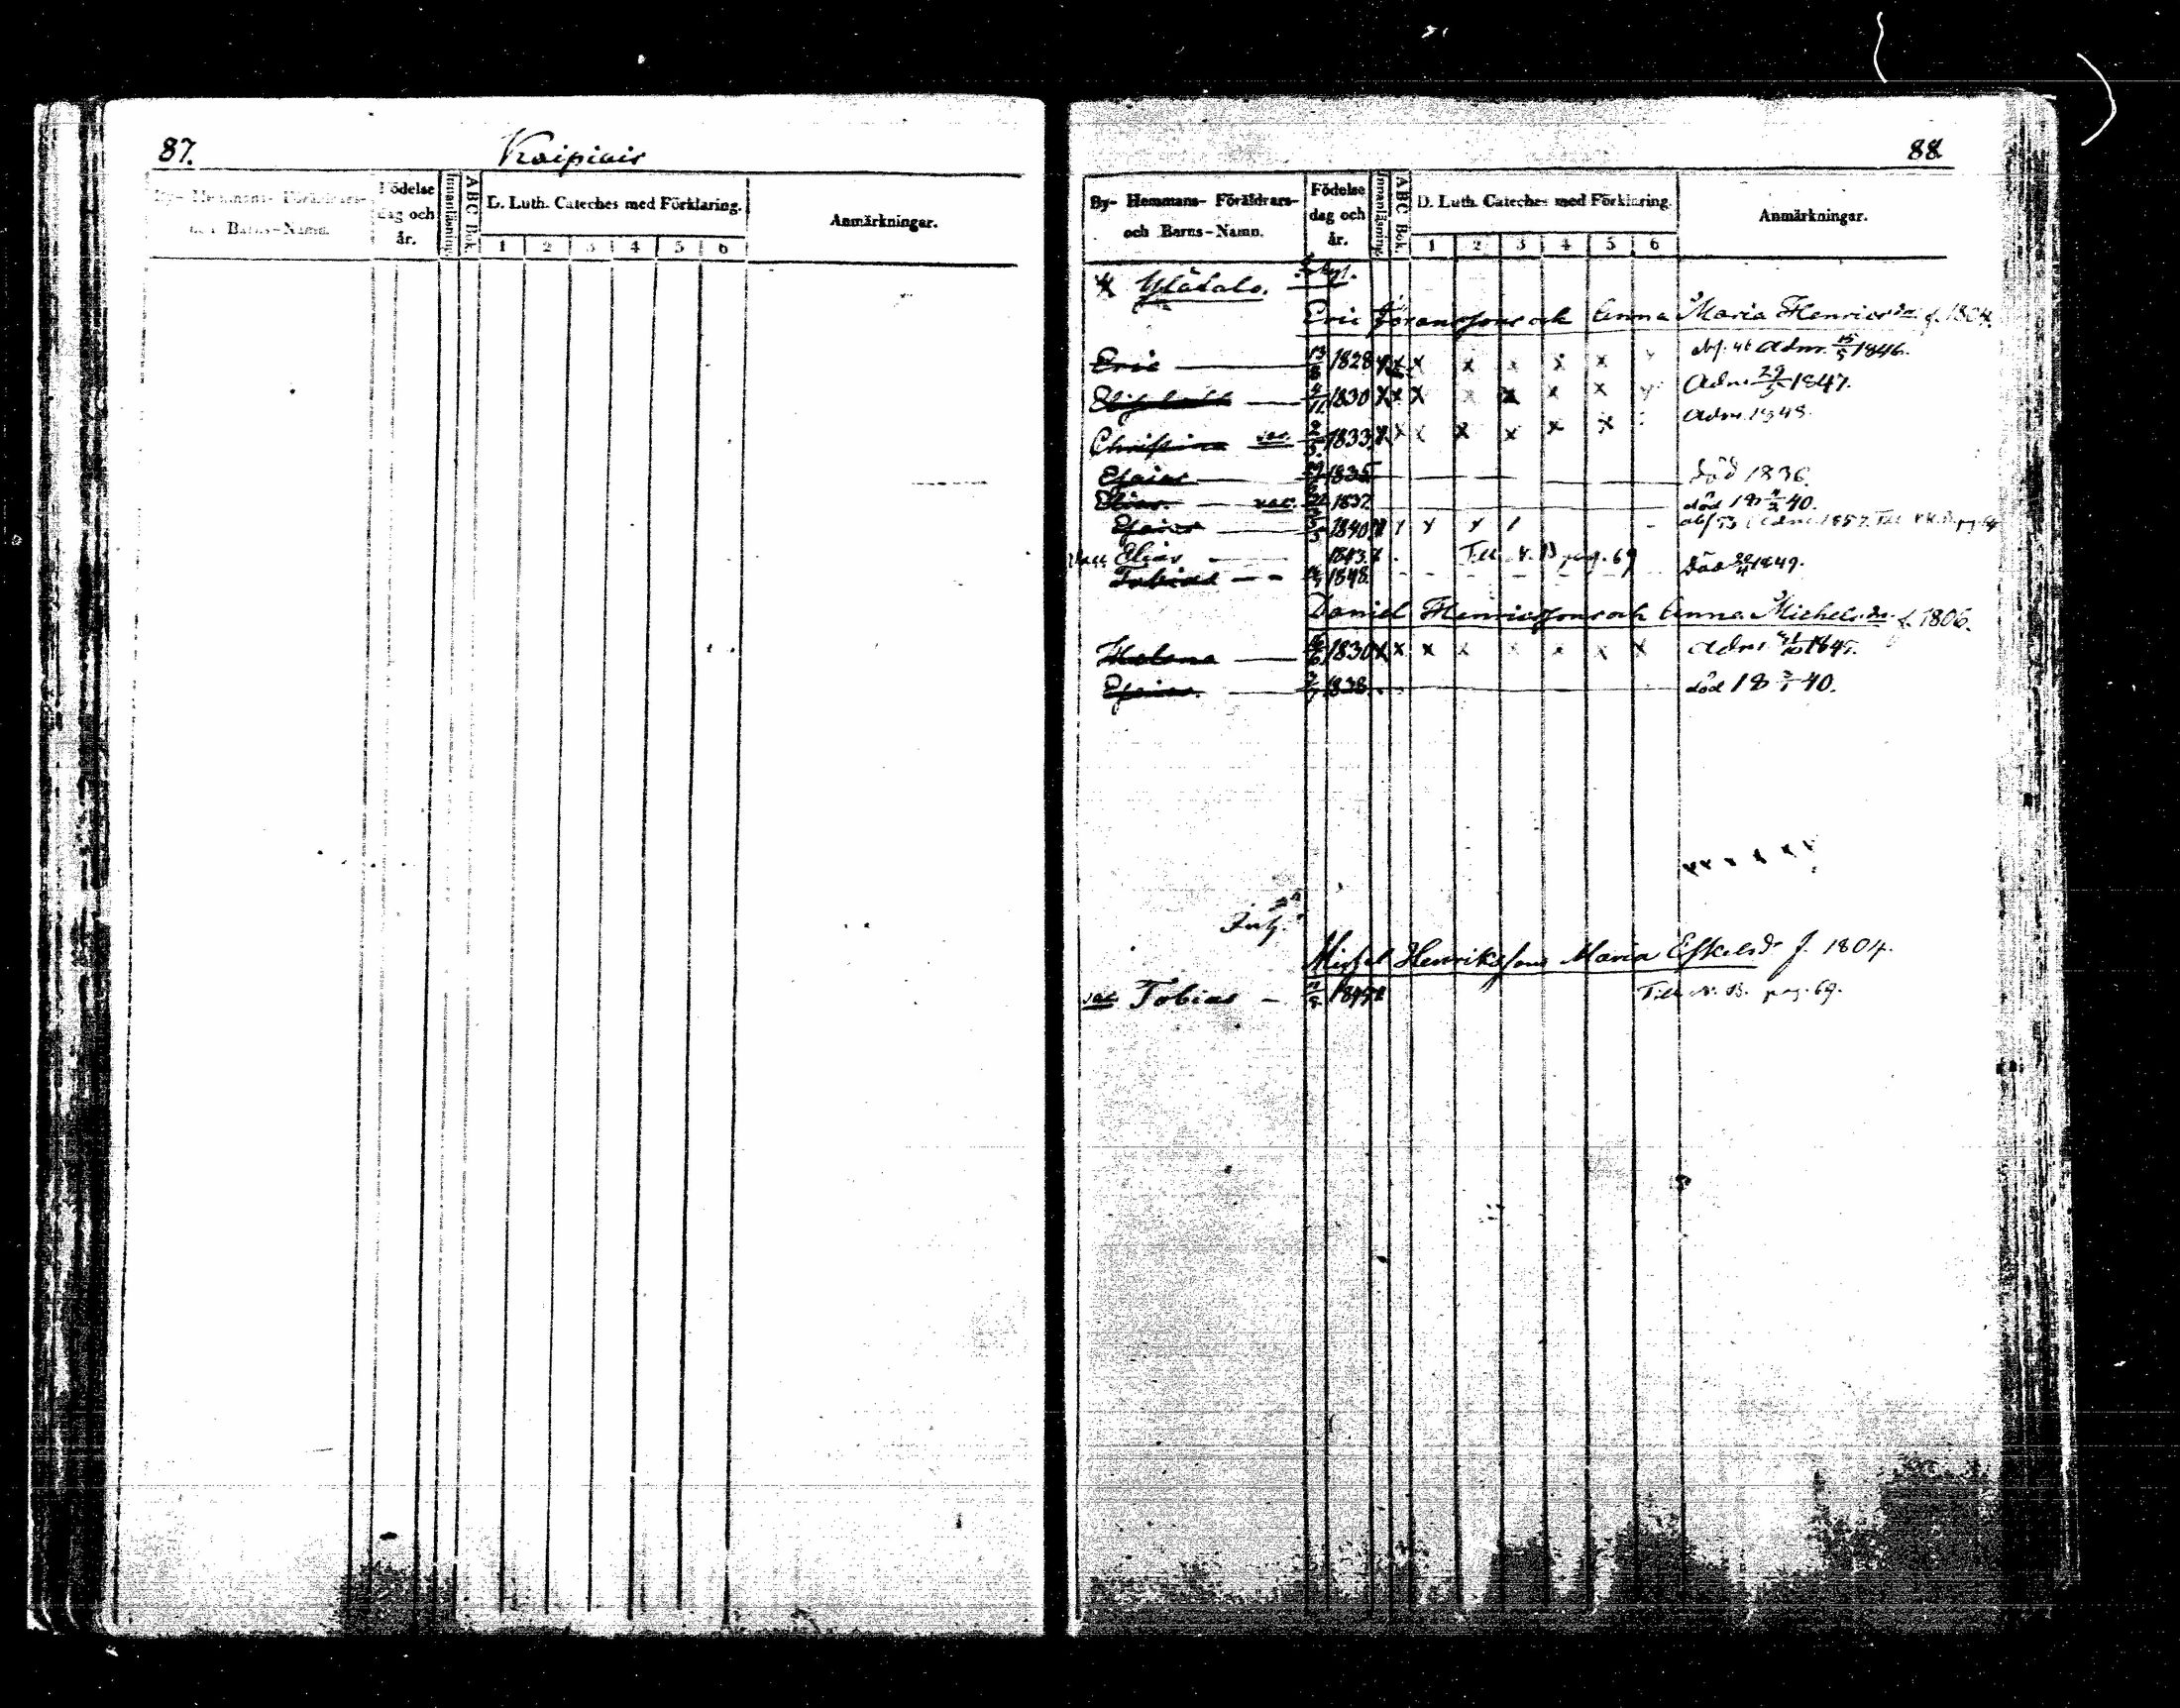 87. Kaipiais
By- Hemmans- Föräldrars- och Barns-Namn. Födelse dag och år. Innanläsning. ABC Bok. D. Luth. Cateches med Förklaring. Anmärkningar.
1 2 3 4 5 6
88.
By- Hemmans- Föräldrars- och Barns-Namn. Födelse dag och år. Innanläsning. ABC Bok. D. Luth. Cateches med Förklaring. Anmärkningar.
1 2 3 4 5 6
Ylätalo.
Eric Göranssons och Anna Maria Henricsdr f. 1804.
Eric 1828 x x x x x Adm. 15/5 1846.
Elisabeth 1830 x x x x x x x Adm. 29/5 1847.
Christina vac. 1833 x x x x x x x Adm. 1848.
Esaias 1835 död 1836.
Elias vac. 1837 död 18 40.
Esaias 1840 x x 1857
Elias 1843 Till N. B. pag. 69
Tobias 1848 död 1849.
Daniel Henricssons och Anna Michelsdr f. 1806.
Helena 1830 x x x x x x x x Adm.
Esaias 1838 död 18 3/1 40.
x x x x x x
Inh.
Michel Henrikssons Maria Eskelsdr f. 1804.
vac Tobias Till N. B. pag. 69.